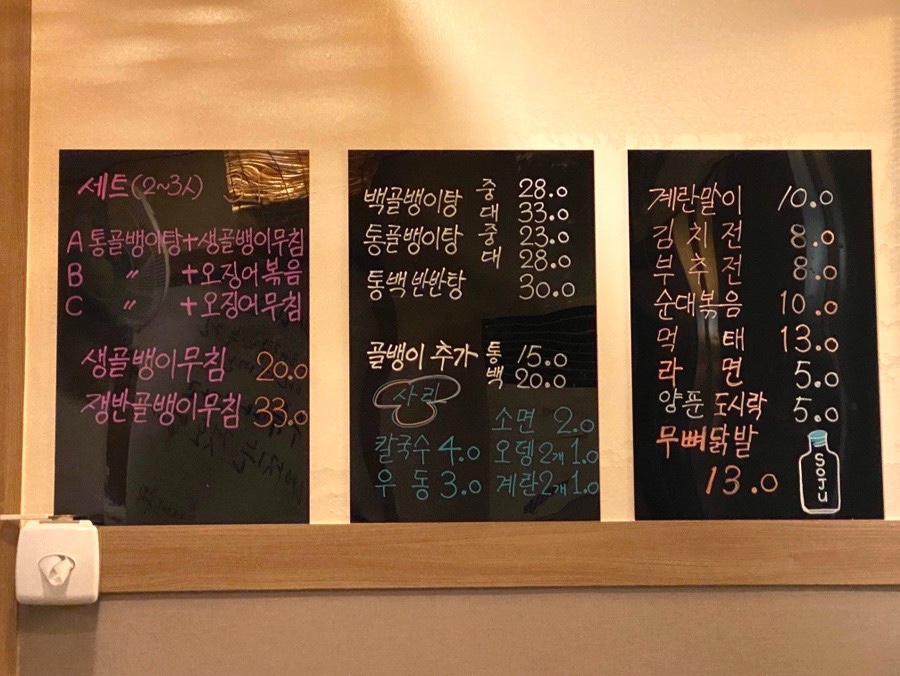 세트(2~3人)
A 통골뱅이탕+생골뱅이무침
B 〃 +오징어볶음
C 〃 +오징어무침
생골뱅이무침 20.0
쟁반골뱅이무침 33.0
백골뱅이탕 중 28.0
대 33.0
통골뱅이탕 중 23.0
대 28.0
통백반반탕 30.0
골뱅이 추가 통 15.0
백 20.0
사리
소면 2.0
칼국수 4.0 오뎅2개 1.0
우동 3.0 계란2개 1.0
계란말이 10.0
김치전 8.0
부추전 8.0
순대볶음 10.0
먹태 13.0
라면 5.0
양푼 도시락 5.0
무뼈닭발
13.0
SOJU